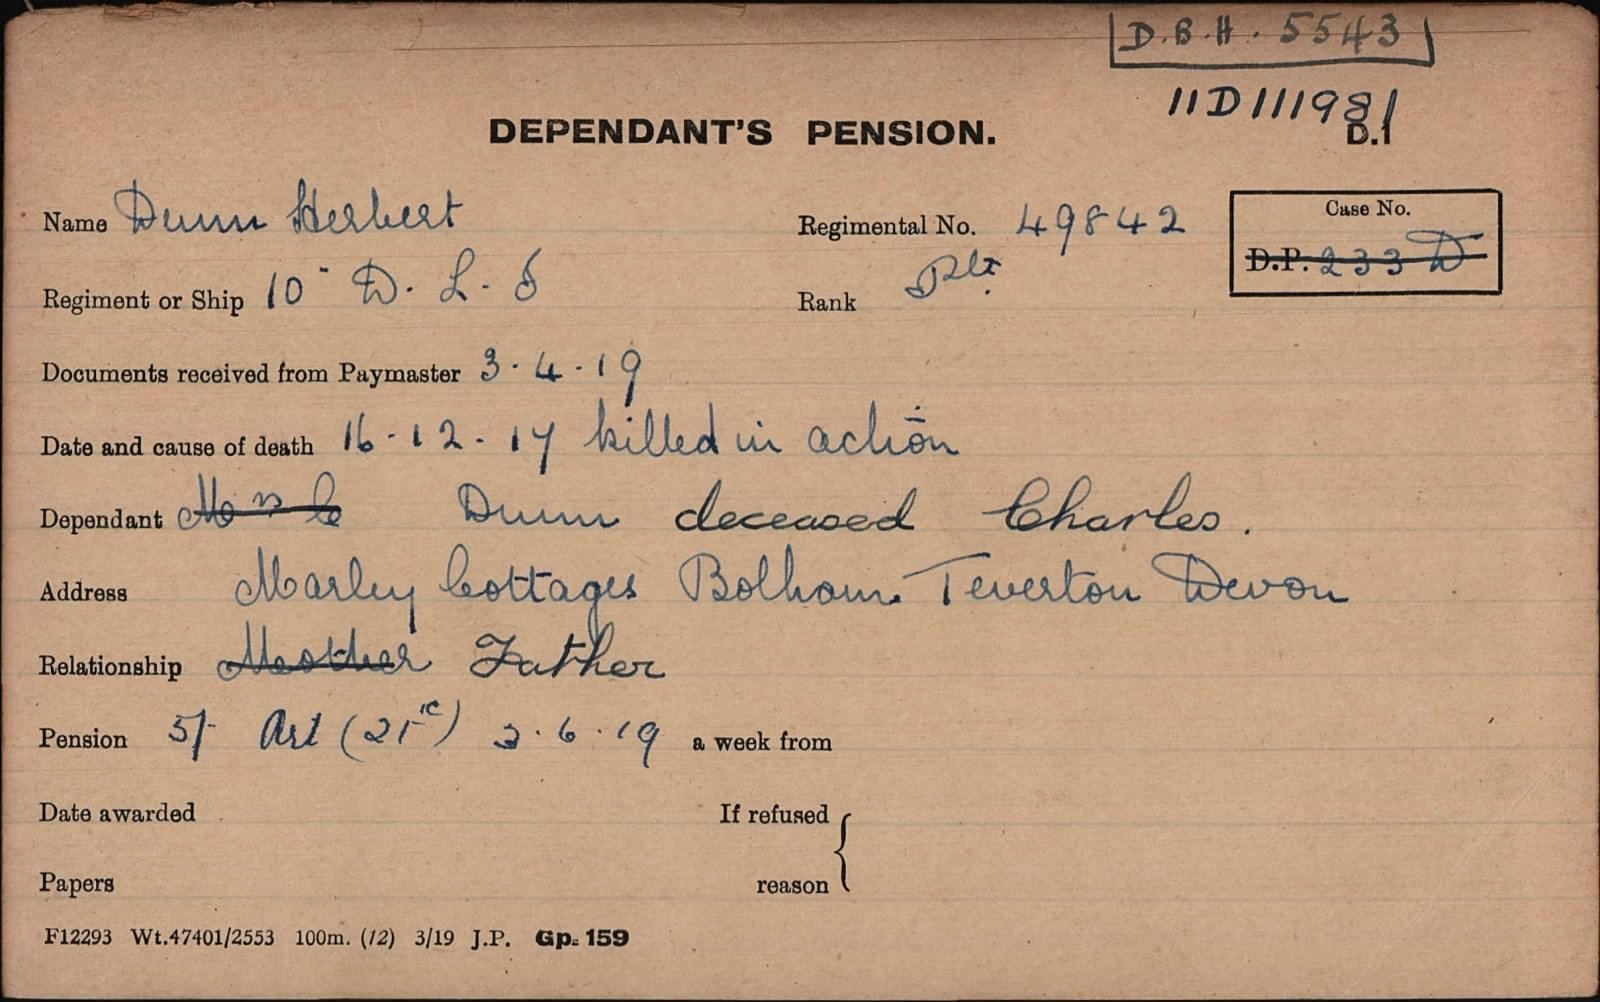 D.B.H. 5543
11D111981
DEPENDANT'S PENSION.
D.1
Name Dunn Herbert Regimental No. 49842
Case No.
D.P. 233 D
Regiment or Ship 10" D. L. I Rank Pte.
Documents received from Paymaster 3.4.19
Date and cause of death 16-12-17 killed in action
Dependant Mrs C Dunn deceased Charles.
Address Marley Cottages Bolham. Teverton Devon
Relationship Mother Father
Pension 5/- Art (21c) 3.6.19 a week from
Date awarded If refused
Papers reason
F12293 Wt.47401/2553 100m. (12) 3/19 J.P. Gp. 159